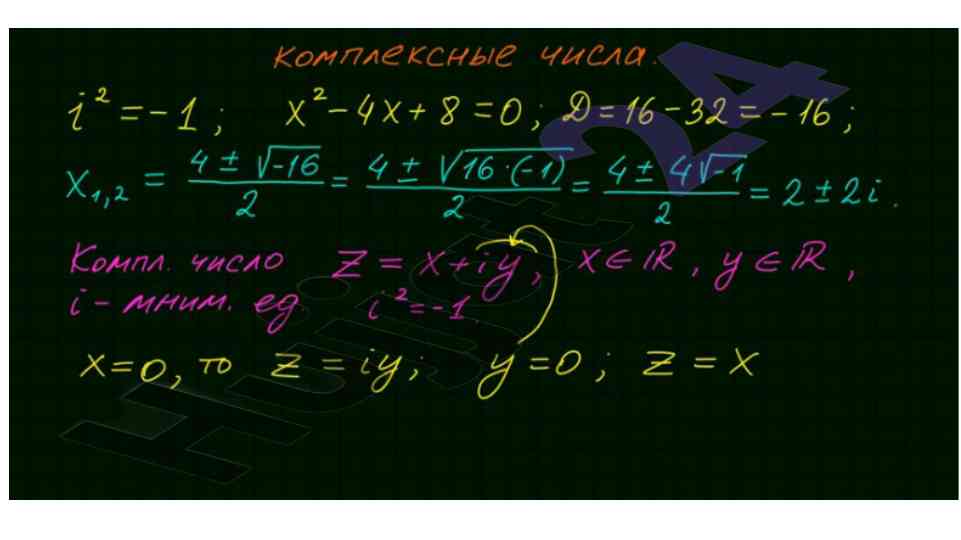 Комплексные числа.
i² = -1 ; x² - 4x + 8 = 0 ; D = 16 - 32 = -16 ;
x₁,₂ = (4 ± √-16)/2 = (4 ± √16·(-1))/2 = (4 ± 4√-1)/2 = 2 ± 2i .
Компл. число z = x + iy , x ∈ ℝ , y ∈ ℝ ,
i - мним. ед. i² = -1
x = 0, то z = iy ; y = 0 ; z = x